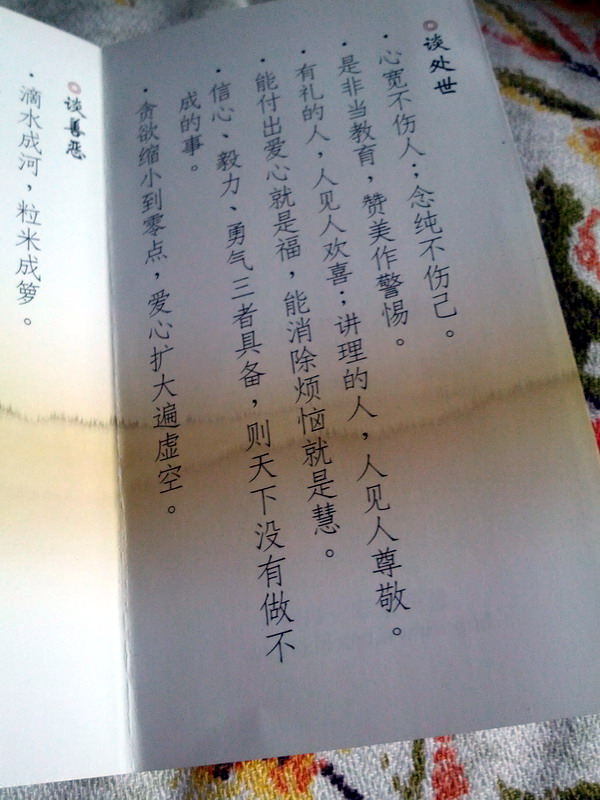 谈处世
·心宽不伤人；念纯不伤己。
·是非当教育，赞美作警惕。
·有礼的人，人见人欢喜；讲理的人，人见人尊敬。
·能付出爱心就是福，能消除烦恼就是慧。
·信心、毅力、勇气三者具备，则天下没有做不
成的事。
·贪欲缩小到零点，爱心扩大遍虚空。
谈善恶
·滴水成河，粒米成箩。